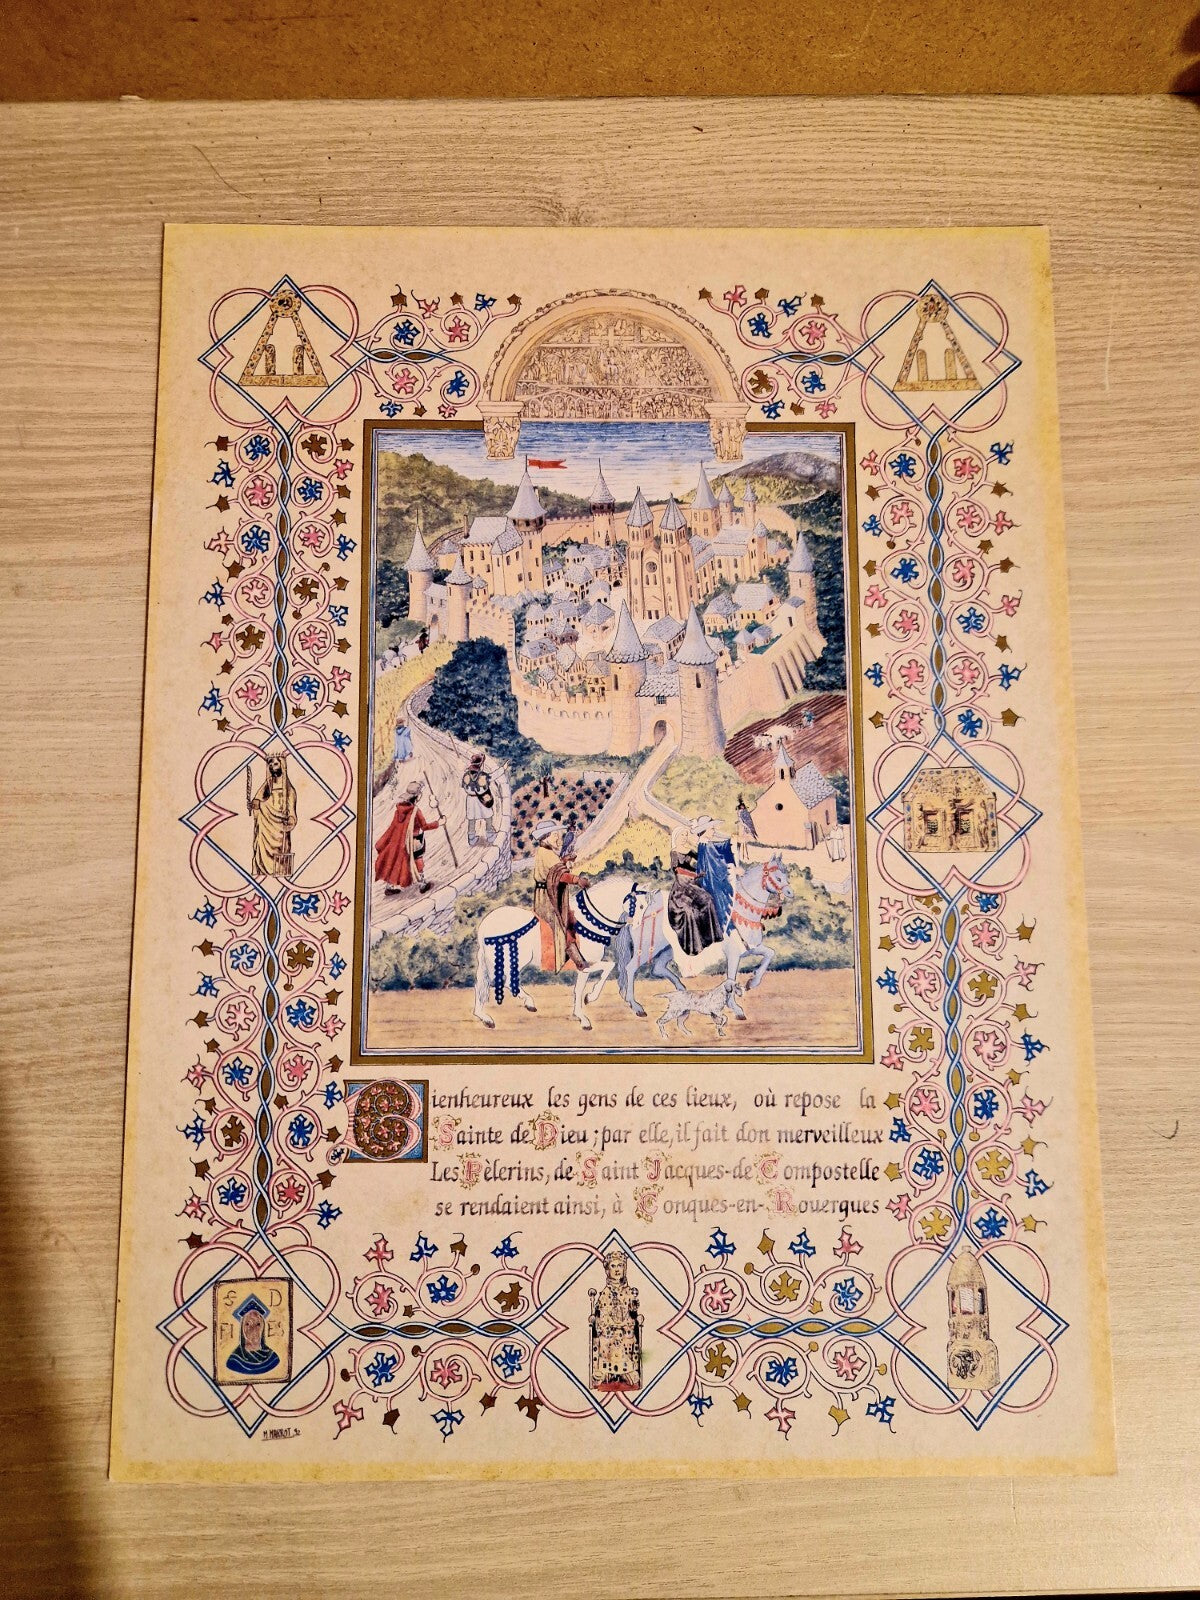 Bienheureux les gens de ces lieux, où repose la
Sainte de Dieu ; par elle, il fait don merveilleux
Les Pèlerins, de Saint Jacques-de-Compostelle
se rendaient ainsi, à Conques-en-Rouergues
S D
FI ES